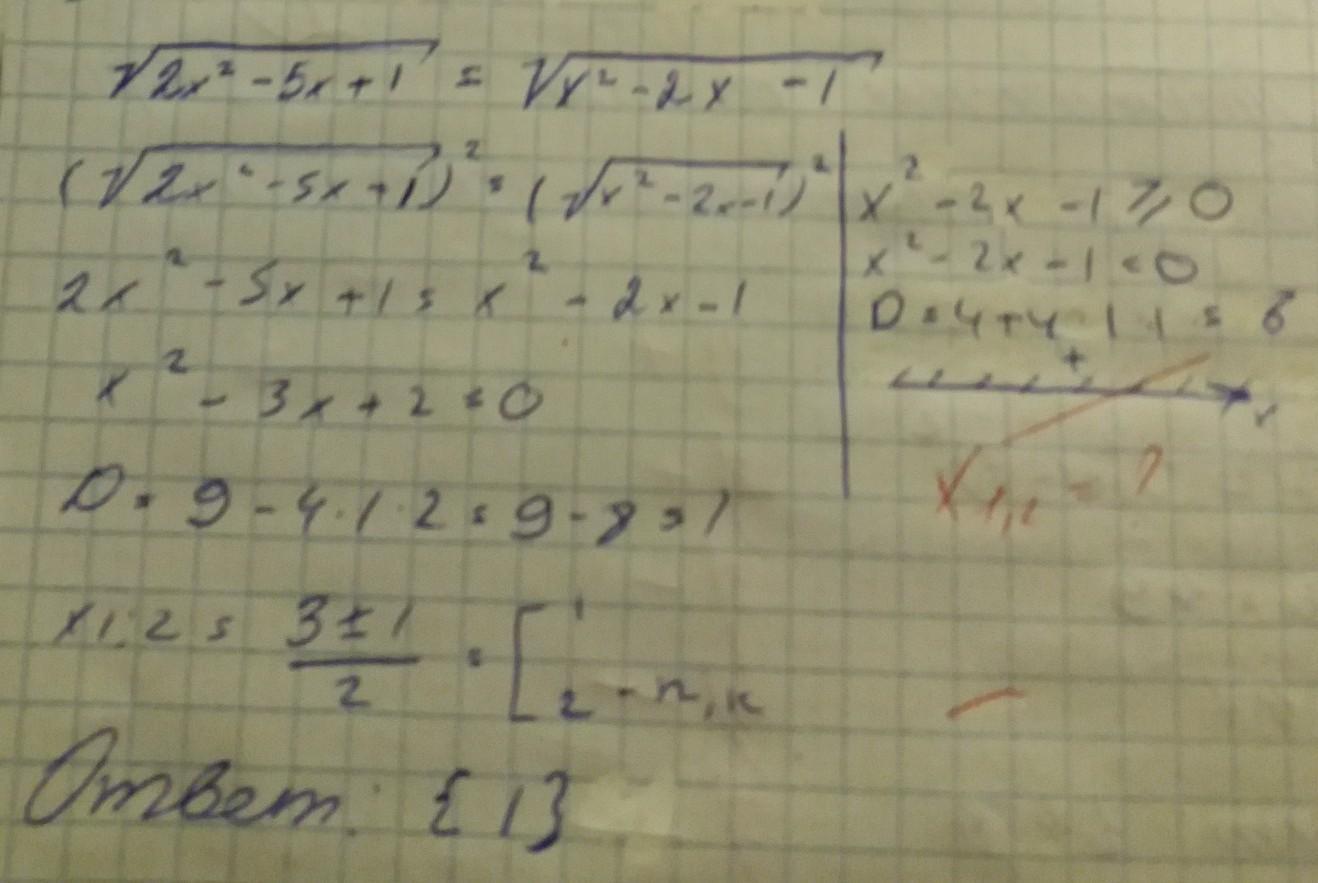 √(2x² - 5x + 1) = √(x² - 2x - 1)
(√(2x² - 5x + 1))² = (√(x² - 2x - 1))²
2x² - 5x + 1 = x² - 2x - 1
x² - 3x + 2 = 0
D = 9 - 4·1·2 = 9 - 8 = 1
x1,2 = (3 ± 1)/2 = [ 1
2 - п,к
Ответ: {1}
x² - 2x - 1 ≥ 0
x² - 2x - 1 = 0
D = 4 + 4·1·1 = 8
+
x
x1,2 = ?